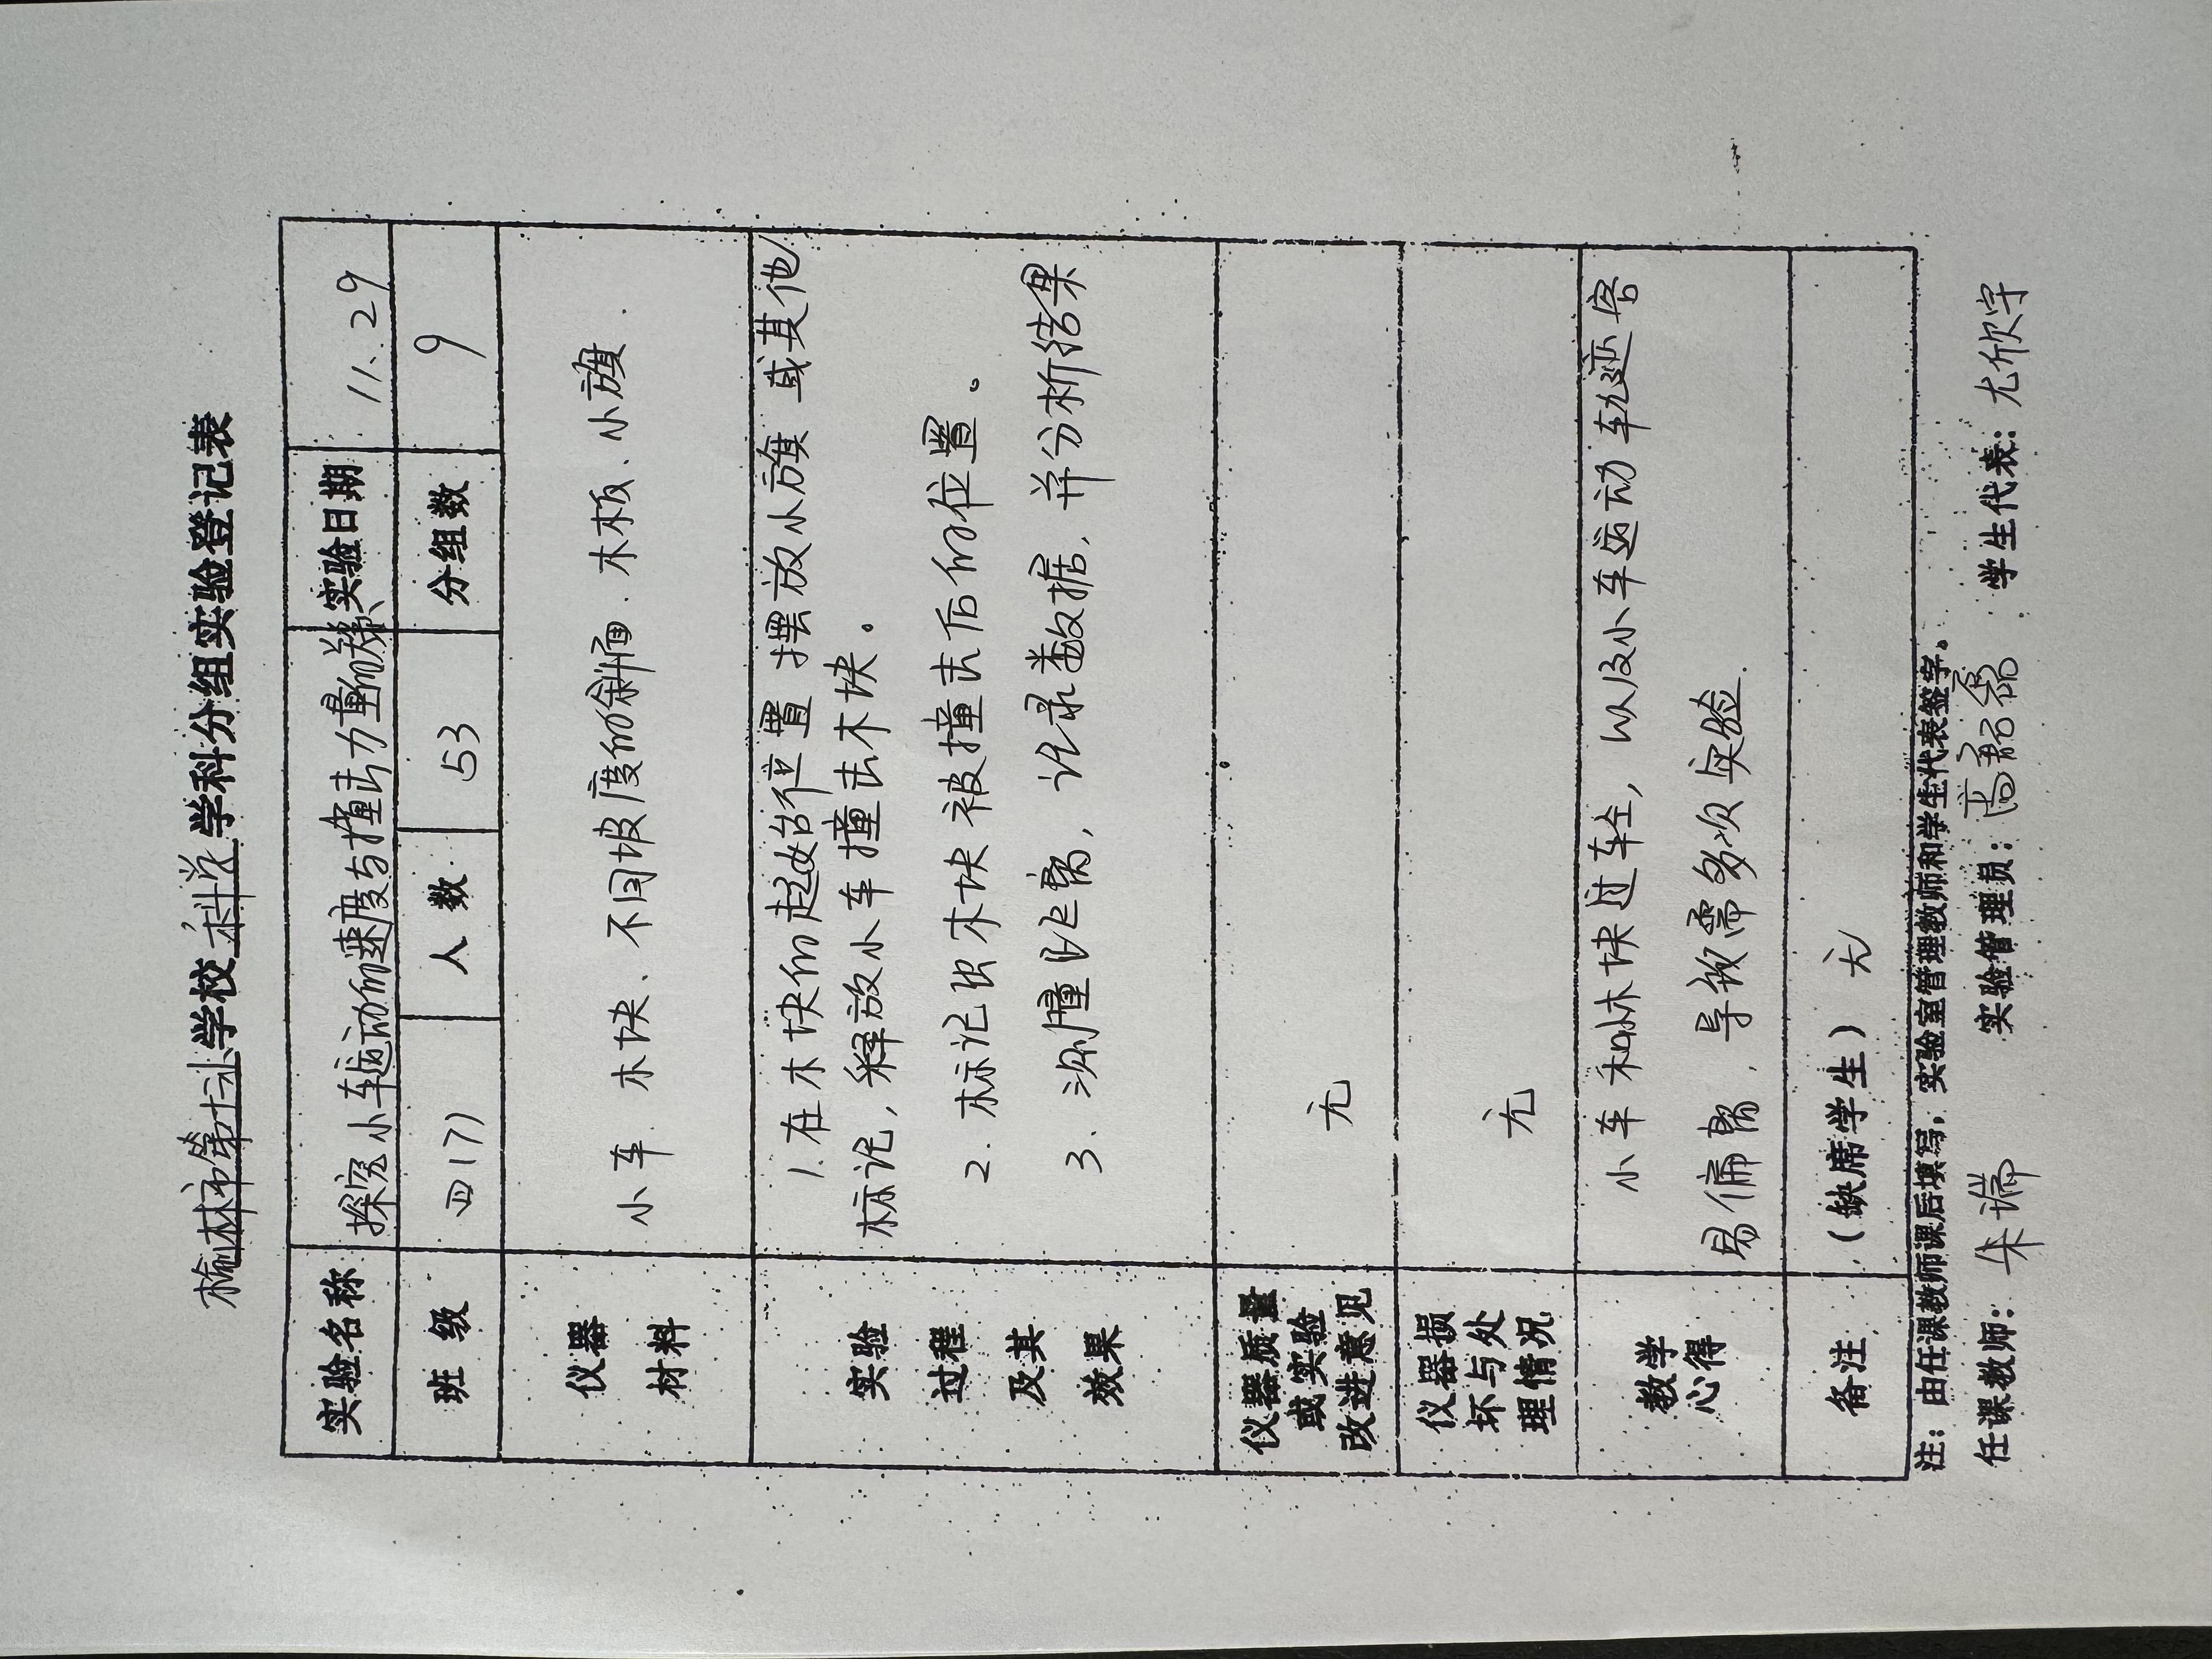 榆林市第十小学校 科学 学科分组实验登记表
实验名称 探究小车运动的速度与撞击力量的关系 实验日期 11.29
班 级 四(7) 人 数 53 分组数 9
仪器
材料
小车、木块、不同坡度的斜面、木板、小旗.
实验
过程
及其
效果
1.在木块的起始位置摆放小旗或其他
标记,释放小车撞击木块。
2.标记出木块被撞击后的位置。
3.测量距离,记录数据,并分析结果
仪器质量
或实验
改进意见
无
仪器损
坏与处
理情况
无
教学
心得
小车和木块过轻,以及小车运动轨迹容
易偏离,导致需多次实验.
备注 (缺席学生) 无
注:由任课教师课后填写,实验室管理教师和学生代表签字。
任课教师: 朱端 实验管理员: 学生代表: 尤欣宇